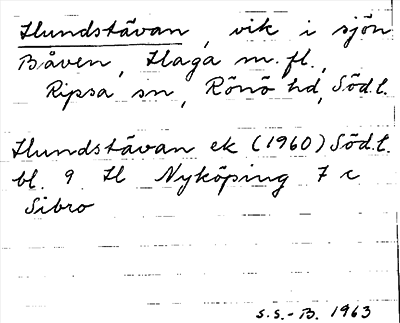 Hundstävan, vik i sjön
Båven, Haga m. fl.,
Ripsa sn, Rönö hd, Södl.
Hundstävan ek (1960) Södl.
bl. 9 H Nyköping 7 c
Sibro
S.S.-B. 1963